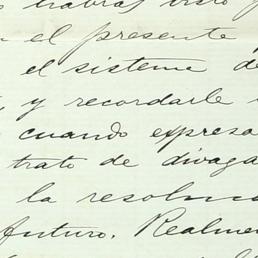 habrás visto
el presente
el sistema de
y recordarle
cuando expresa
trato de divaga
la resoluc
futuro. Realmen